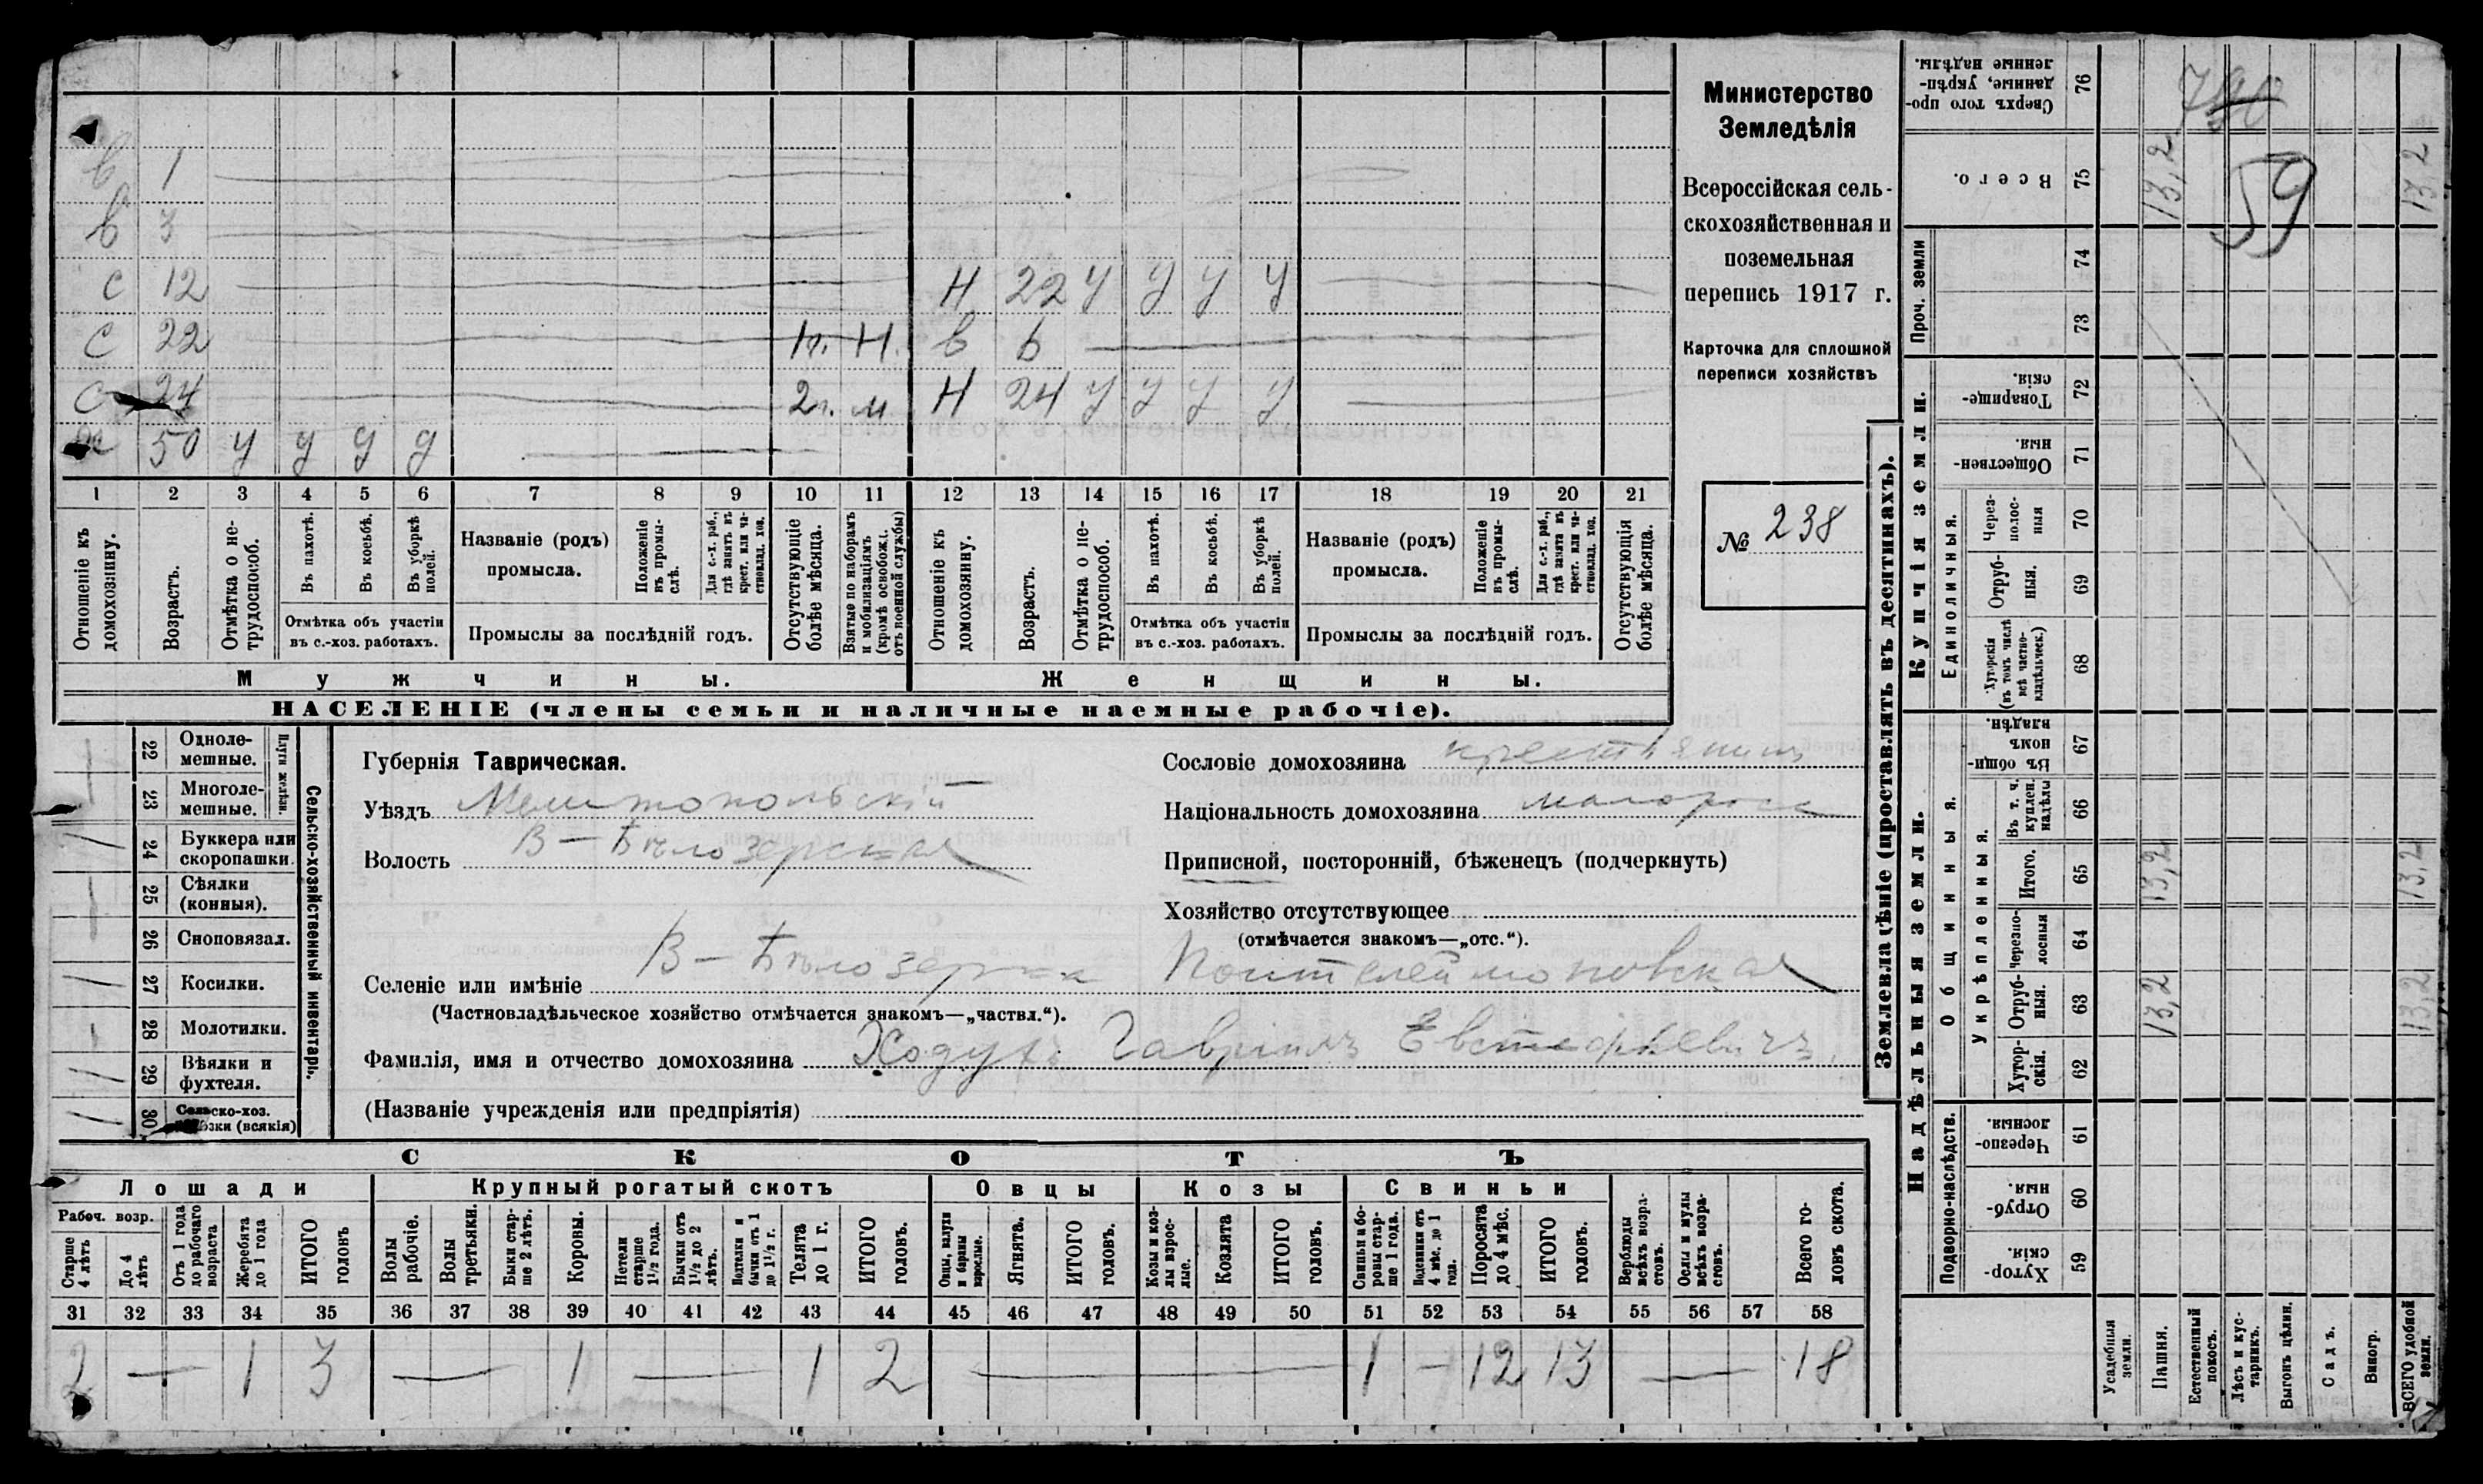 в 1
в 3
с 12 Н 22 у у у у
с 22 1г. Н. в 6
с 24 2г. м Н 24 у у у у
50 у у у у
1 2 3 4 5 6 7 8 9 10 11 12 13 14 15 16 17 18 19 20 21
Отношеніе къ домохозяину.
Возрастъ.
Отмѣтка о нетрудоспособ.
Въ пахотѣ.
Въ косьбѣ.
Въ уборкѣ полей.
Отмѣтка объ участіи въ с.-хоз. работахъ.
Названіе (родъ) промысла.
Положеніе въ промыслѣ.
Для с.-х. раб., гдѣ занятъ въ крест. или частновлад. хоз.
Промыслы за послѣдній годъ.
Отсутствующіе болѣе мѣсяца.
Взятые по наборамъ и мобилизаціямъ (кромѣ освобожд. отъ военной службы)
Отношеніе къ домохозяину.
Возрастъ.
Отмѣтка о нетрудоспособ.
Въ пахотѣ.
Въ косьбѣ.
Въ уборкѣ полей.
Отмѣтка объ участіи въ с.-хоз. работахъ.
Названіе (родъ) промысла.
Положеніе въ промыслѣ.
Для с.-х. раб., гдѣ занята въ крест. или частновлад. хоз.
Промыслы за послѣдній годъ.
Отсутствующія болѣе мѣсяца.
Мужчины.
Женщины.
НАСЕЛЕНІЕ (члены семьи и наличные наемные рабочіе).
Министерство
Земледѣлія
Всероссійская сель-
скохозяйственная и
поземельная
перепись 1917 г.
Карточка для сплошной
переписи хозяйствъ
№ 238
Сельско-хозяйственный инвентарь.
Плуги желѣзн.
22 Одноле-
мешные.
23 Многоле-
мешные.
24 Буккера или
скоропашки.
25 Сѣялки
(конныя).
26 Сноповязал.
27 Косилки.
28 Молотилки.
29 Вѣялки и
фухтеля.
30 Сельско-хоз.
(всякія)
Губернія Таврическая.
Уѣздъ Мелитопольскій
Волость В-Бѣлозерская
Сословіе домохозяина крестьянинъ
Національность домохозяина малоросс
Приписной, посторонній, бѣженецъ (подчеркнуть)
Хозяйство отсутствующее
(отмѣчается знакомъ—„отс.“).
Селеніе или имѣніе В-Бѣлозерка
(Частновладѣльческое хозяйство отмѣчается знакомъ—„частвл.“).
Фамилія, имя и отчество домохозяина Ходусъ Гавріилъ
(Названіе учрежденія или предпріятія)
СКОТЪ
Лошади Крупный рогатый скотъ Овцы Козы Свиньи
Рабоч. возр.
Старше 4 лѣтъ
До 4 лѣтъ
Отъ 1 года до рабочаго возраста
Жеребята до 1 года
ИТОГО головъ
Волы рабочіе.
Волы третьяки.
Быки старше 2 лѣтъ.
Коровы.
Нетели старше 1½ года.
Бычки отъ 1½ до 2 лѣтъ.
Подтелки и бычки отъ 1 до 1½ г.
Телята до 1 г.
ИТОГО головъ.
Овцы, валухи и бараны взрослые.
Ягнята.
ИТОГО головъ.
Козы и козлы взрослые.
Козлята
ИТОГО головъ.
Свиньи и боровы старше 1 года.
Подсвинки отъ 4 мѣс. до 1 года.
Поросята до 4 мѣс.
ИТОГО головъ.
Верблюды всѣхъ возрастовъ.
Ослы и мулы всѣхъ возрастовъ.
Всего головъ скота.
31 32 33 34 35 36 37 38 39 40 41 42 43 44 45 46 47 48 49 50 51 52 53 54 55 56 57 58
2 — 1 3 — 1 — 1 2 — 1 - 12 13 — 18
Землевладѣніе (проставлять въ десятинахъ).
Надѣльныя земли.
Купчія земли.
Проч. земли
Общинныя.
Укрѣпленныя.
Единоличныя.
Подворно-наслѣдств.
76 Сверхъ того проданные, укрѣпленные надѣлы.
75 Всего. 13,2 13,2
74
73
72 Товарищескія.
71 Общественныя.
70 Черезполосныя
69 Отрубныя.
68 Хуторскія (въ томъ числѣ всѣ частновладѣльческ.)
67 Въ общинномъ владѣн.
66 Въ т. ч. куплен. надѣлы
65 Итого. 13,2 13,2
64 Черезполосныя
63 Отрубныя. 13,2 13,2
62 Хуторскія.
61 Черезполосныя.
60 Отрубныя.
59 Хуторскія.
Усадебныя земли.
Пашня.
Естественный покосъ.
Лѣсъ и кустарникъ.
Выгонъ цѣлин.
Садъ.
Виногр.
ВСЕГО удобной земли.
59